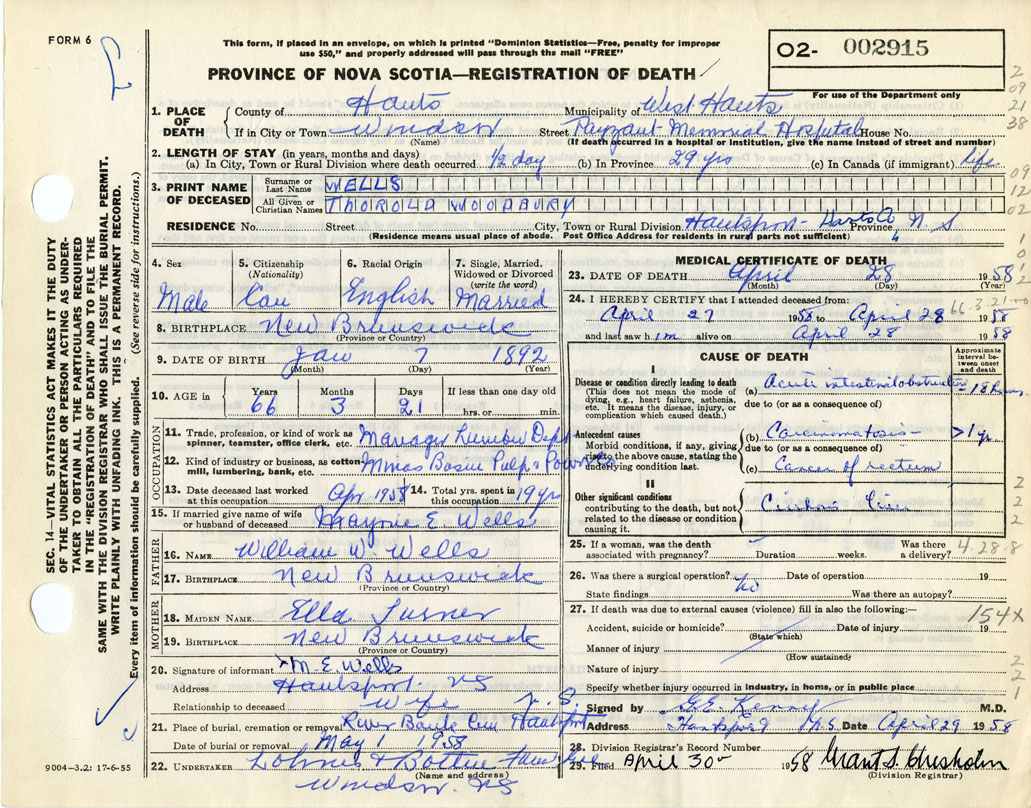 FORM 6
This form, if placed in an envelope, on which is printed "Dominion Statistics—Free, penalty for improper
use $50," and properly addressed will pass through the mail "FREE"
O2- 002915
For use of the Department only
PROVINCE OF NOVA SCOTIA—REGISTRATION OF DEATH
2
09
21
38
1. PLACE OF DEATH
County of Hants Municipality of West Hants
If in City or Town Windsor Street Payzant Memorial Hospital House No.
(Name) (If death occurred in a hospital or institution, give the name instead of street and number)
2. LENGTH OF STAY (in years, months and days)
(a) In City, Town or Rural Division where death occurred 1/2 day (b) In Province 29 yrs (c) In Canada (if immigrant) life
3. PRINT NAME OF DECEASED
Surname or Last Name WELLS
All Given or Christian Names THOROLD WOODBURY
09
12
02
RESIDENCE No. Street City, Town or Rural Division Hantsport Hants Co Province N.S
(Residence means usual place of abode. Post Office Address for residents in rural parts not sufficient)
4. Sex
Male
5. Citizenship
(Nationality)
Can
6. Racial Origin
English
7. Single, Married,
Widowed or Divorced
(write the word)
Married
8. BIRTHPLACE New Brunswick
(Province or Country)
9. DATE OF BIRTH Jan 7 1892
(Month) (Day) (Year)
10. AGE in
Years Months Days If less than one day old
66 3 21 hrs. or min.
OCCUPATION
11. Trade, profession, or kind of work as
spinner, teamster, office clerk, etc. Manager Lumber Dept
12. Kind of industry or business, as cotton
mill, lumbering, bank, etc. Minas Basin Pulp & Power
13. Date deceased last worked
at this occupation Apr 1958 14. Total yrs. spent in
this occupation 19 yrs
15. If married give name of wife
or husband of deceased Mayme E. Wells
FATHER
16. NAME William W. Wells
17. BIRTHPLACE New Brunswick
(Province or Country)
MOTHER
18. MAIDEN NAME Ella Turner
19. BIRTHPLACE New Brunswick
(Province or Country)
20. Signature of informant M.E. Wells
Address Hantsport NS
Relationship to deceased Wife N.S.
21. Place of burial, cremation or removal River Bank Cem Hantsport
Date of burial or removal May 1 1958
22. UNDERTAKER
(Name and address)
Windsor NS
MEDICAL CERTIFICATE OF DEATH
23. DATE OF DEATH April 28 1958
(Month) (Day) (Year)
24. I HEREBY CERTIFY that I attended deceased from:
66.3.21
April 27 1958 to April 28 1958
and last saw him alive on April 28 1958
CAUSE OF DEATH
Approximate
interval be-
tween onset
and death
I
Disease or condition directly leading to death
(This does not mean the mode of
dying, e.g., heart failure, asthenia,
etc. It means the disease, injury, or
complication which caused death.)
(a) Acute intestinal obstruction 18 hours
due to (or as a consequence of)
Antecedent causes
Morbid conditions, if any, giving
rise to the above cause, stating the
underlying condition last.
(b) Carcinomatosis > 1 yr
due to (or as a consequence of)
(c) Cancer of rectum
II
Other significant conditions
contributing to the death, but not
related to the disease or condition
causing it.
25. If a woman, was the death
associated with pregnancy? Duration weeks. Was there
a delivery?
4.28.8
26. Was there a surgical operation? No Date of operation 19
State findings Was there an autopsy?
27. If death was due to external causes (violence) fill in also the following:—
154X
Accident, suicide or homicide? Date of injury 19
(State which)
Manner of injury
(How sustained)
Nature of injury
Specify whether injury occurred in industry, in home, or in public place
Signed by G.E. Kenney M.D.
Address Hantsport N.S. Date April 29 1958
28. Division Registrar's Record Number
29. Filed April 30 1958 Grant S. Chisholm
(Division Registrar)
SEC. 14—VITAL STATISTICS ACT MAKES IT THE DUTY
OF THE UNDERTAKER OR PERSON ACTING AS UNDER-
TAKER TO OBTAIN ALL THE PARTICULARS REQUIRED
IN THE "REGISTRATION OF DEATH" AND TO FILE THE
SAME WITH THE DIVISION REGISTRAR WHO SHALL ISSUE THE BURIAL PERMIT.
WRITE PLAINLY WITH UNFADING INK. THIS IS A PERMANENT RECORD.
Every item of information should be carefully supplied. (See reverse side for instructions.)
9004-3.2: 17-6-55